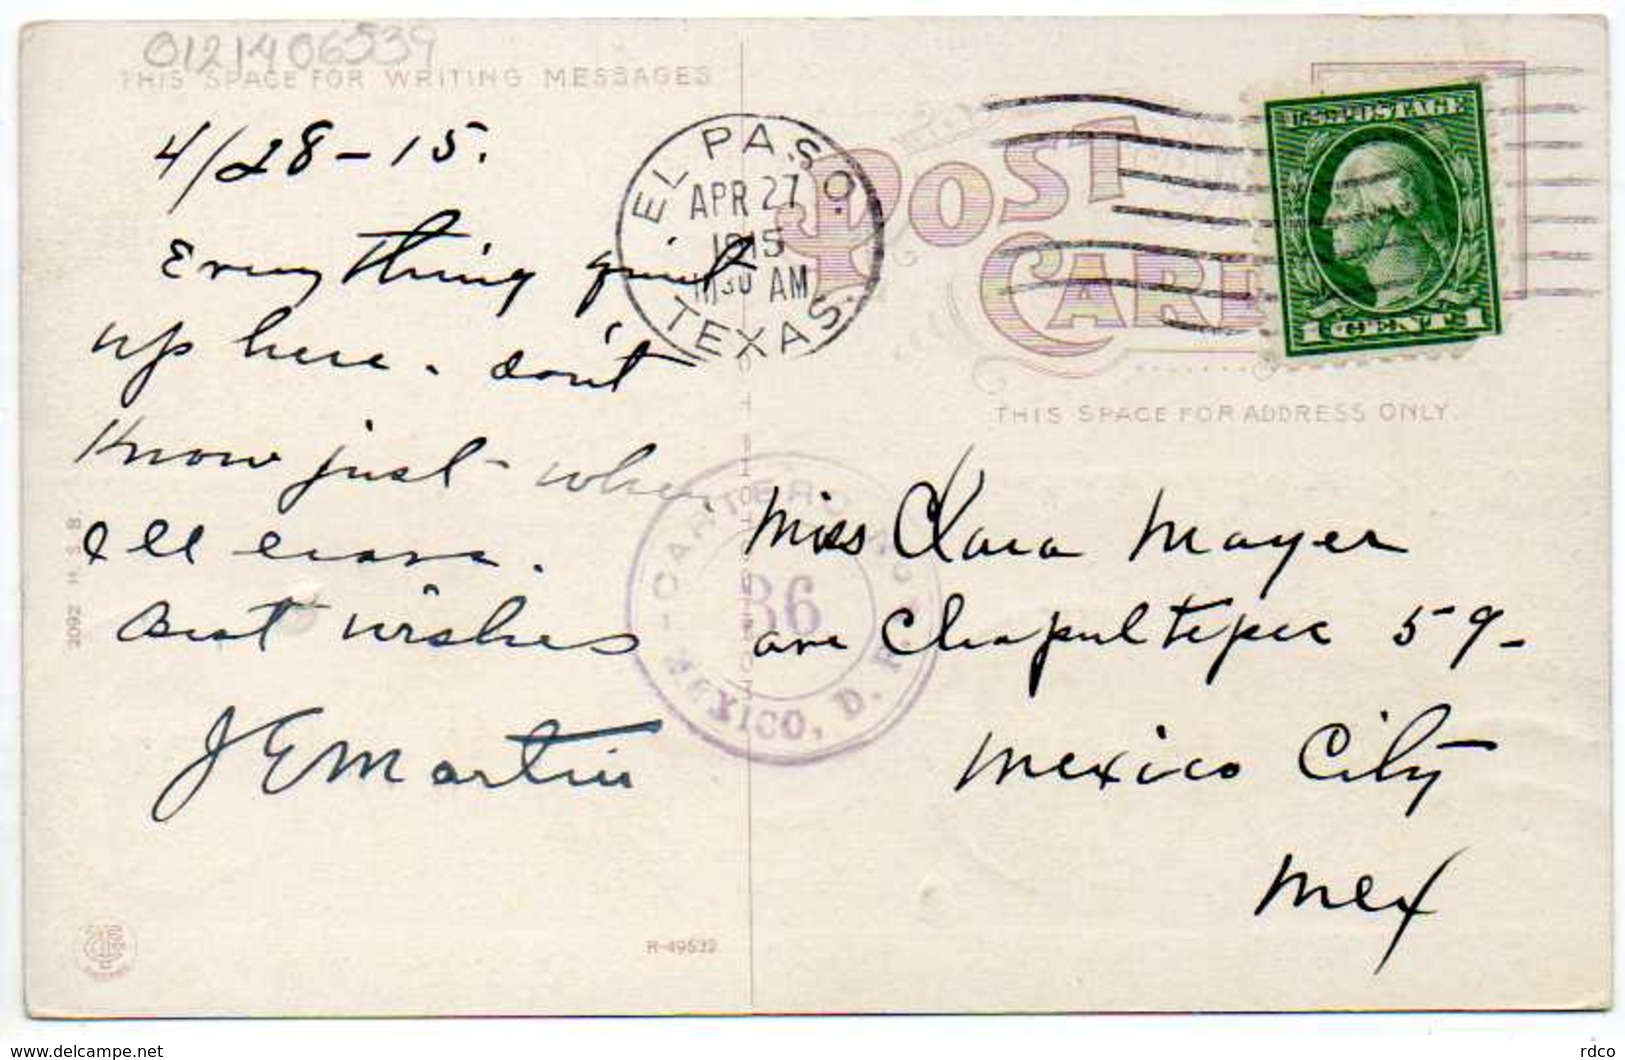 0121406539
THIS SPACE FOR WRITING MESSAGES
4/28-15.
Everything quiet
up here. don't
Know just when
I'll leave.
Best wishes
J E Martin
2092 H. S. B.
R-49532
EL PASO.
APR 27
1915
30 AM
TEXAS.
POST
CARD
U.S. POSTAGE
1 CENT 1
THIS SPACE FOR ADDRESS ONLY.
36
MEXICO, D. F.
Miss Clara Mayer
ave Chapultepec 59-
Mexico City
Mex
www.delcampe.net
rdco